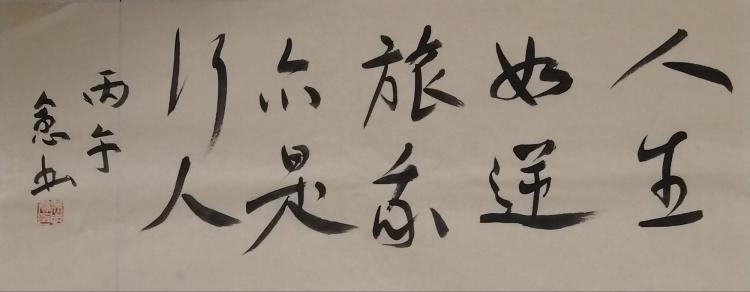 人生
如逆
旅我
亦是
行人
丙午